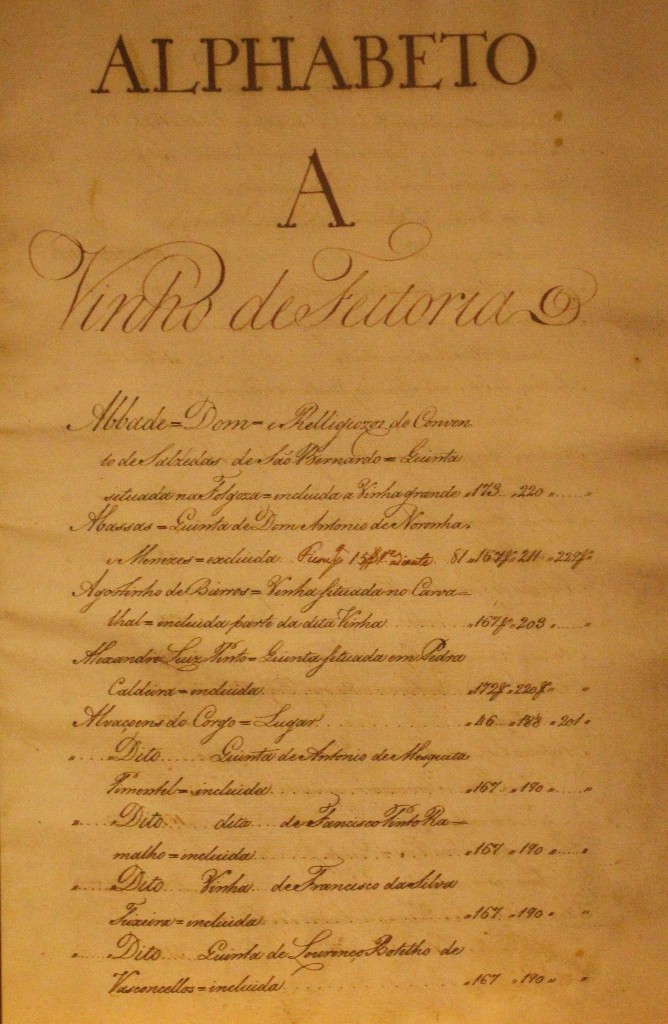 ALPHABETO
A
Vinho de Feitoria
Abbade = Dom = e Relligiozos do Conven
to de Salzedas de São Bernardo = Quinta
situada na Folgoza = incluida a Vinha grande „ 173 „ 220 „ ..... „
Abassas = Quinta de Dom Antonio de Noronha
e Menezes = excluida. 81 „ 167 „ 211 „ 229
Agostinho de Barros = Vinha situada no Carva=
lhal = incluida parte da dita Vinha ..... „ 167 „ 203 „ ..... „
Alexandre Luiz Pinto = Quinta situada em Pedra
Caldeira = incluida ..... „ 172 „ 220 „ „
Alvaçens do Corgo = Lugar ..... „ 46 „ 188 „ 201 „
„ ..... Dito ..... Quinta de Antonio de Mesquita
Pimentel = incluida ..... „ 167 „ 190 „ ..... „
„ ..... Dito ..... dita ..... de Francisco Pinto Ra=
malho = incluida ..... „ 167 „ 190 „ ..... „
„ ..... Dito Vinha de Francisco da Silva
Teixeira = incluida ..... „ 167 „ 190 „ ..... „
„ ..... Dito Quinta de Lourenço Botelho de
Vasconcellos = incluida ..... „ 167 „ 190 „ ..... „